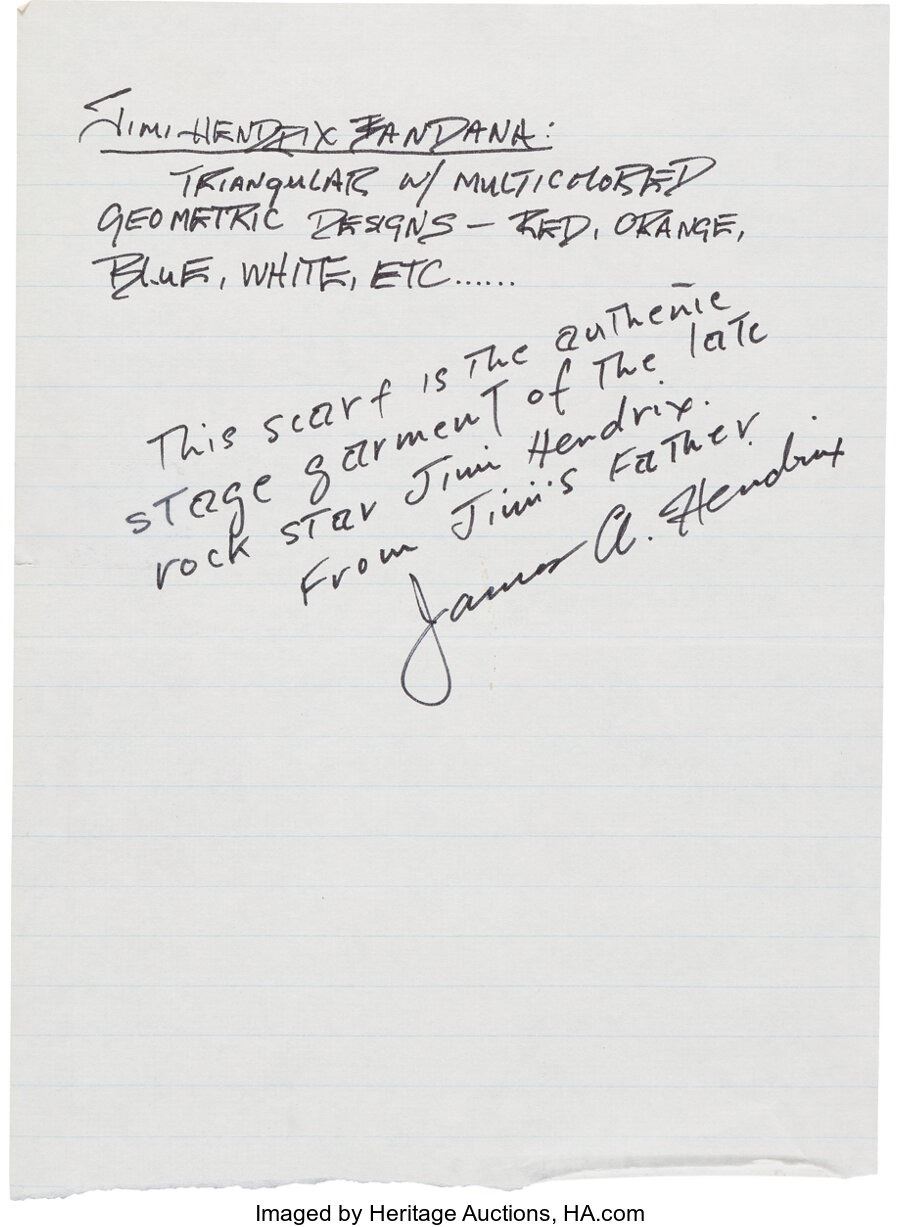 JIMI HENDRIX BANDANA:
TRIANGULAR W/ MULTICOLORED
GEOMETRIC DESIGNS – RED, ORANGE,
BLUE, WHITE, ETC......
This scarf is The auThenTic
sTage garmenT of The laTe
rock sTar Jimi Hendrix.
From Jimi's FaTher.
James A. Hendrix
Imaged by Heritage Auctions, HA.com